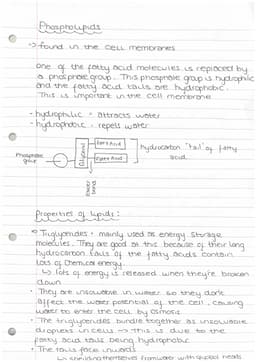 Phospholipids
→ found in the cell membranes
One of the fatty acid molecules is replaced by
a phosphate group. This phosphate group is hydrophilic
and the fatty acid tails are hydrophobic.
This is important in the cell membrane
- hydrophilic = attracts water
- hydrophobic = repels water
Phosphate
group
Glycerol
Fatty Acid
Fatty Acid
hydrocarbon "tail" of fatty
acid.
Ester
bond
Properties of lipids:
• Triglycerides = mainly used as energy storage
molecules. They are good at this because of their long
hydrocarbon tails of the fatty acids contain
lots of chemical energy.
↳ lots of energy is released when they're broken
down
• They are insoluble in water so they don't
affect the water potential of the cell, causing
water to enter the cell by osmosis
• The triglycerides bundle together as insoluble
droplets in cells → this is due to the
fatty acid tails being hydrophobic
• The tails face inwards
↳ shielding themselves from water with glycerol heads